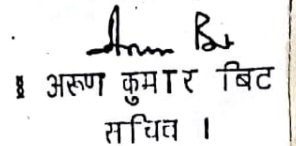 अरूण कुमार बिट
सचिव ।